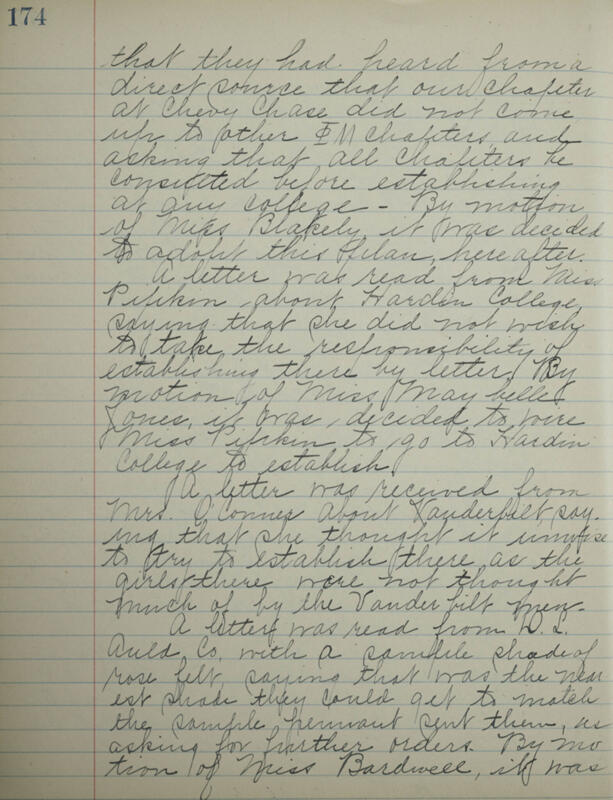 174
that they had heard from a
direct source that our chapter
at Chevy Chase did not come
up to other ΦM chapters, and
asking that all chapters be
consulted before establishing
at any college - By motion
of Miss Blakely, it was decided
to adopt this plan, hereafter.
A letter was read from Miss
Pipkin about Hardin College
saying that she did not wish
to take the responsibility of
establishing there by letter. By
motion of Miss May belle
Jones, it was decided to wire
Miss Pipkin to go to Hardin
College to establish.
A letter was received from
Mrs. O'Conner about Vanderbilt, say-
ing that she thought it unwise
to try to establish there as the
girls there were not thought
much of by the Vanderbilt men.
A letter was read from D. L.
Auld Co. with a sample shade of
rose felt, saying that was the near
est shade they could get to match
the sample pennant sent them, as
asking for further orders. By mo
tion of Miss Bardwell, it was